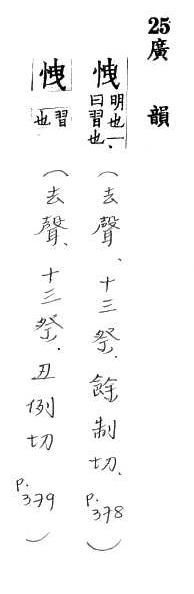 25廣韻
怈 明也一、曰習也、（去聲、十三祭．餘制切、p.378）
怈 習也（去聲、十三祭．丑例切 p.379）